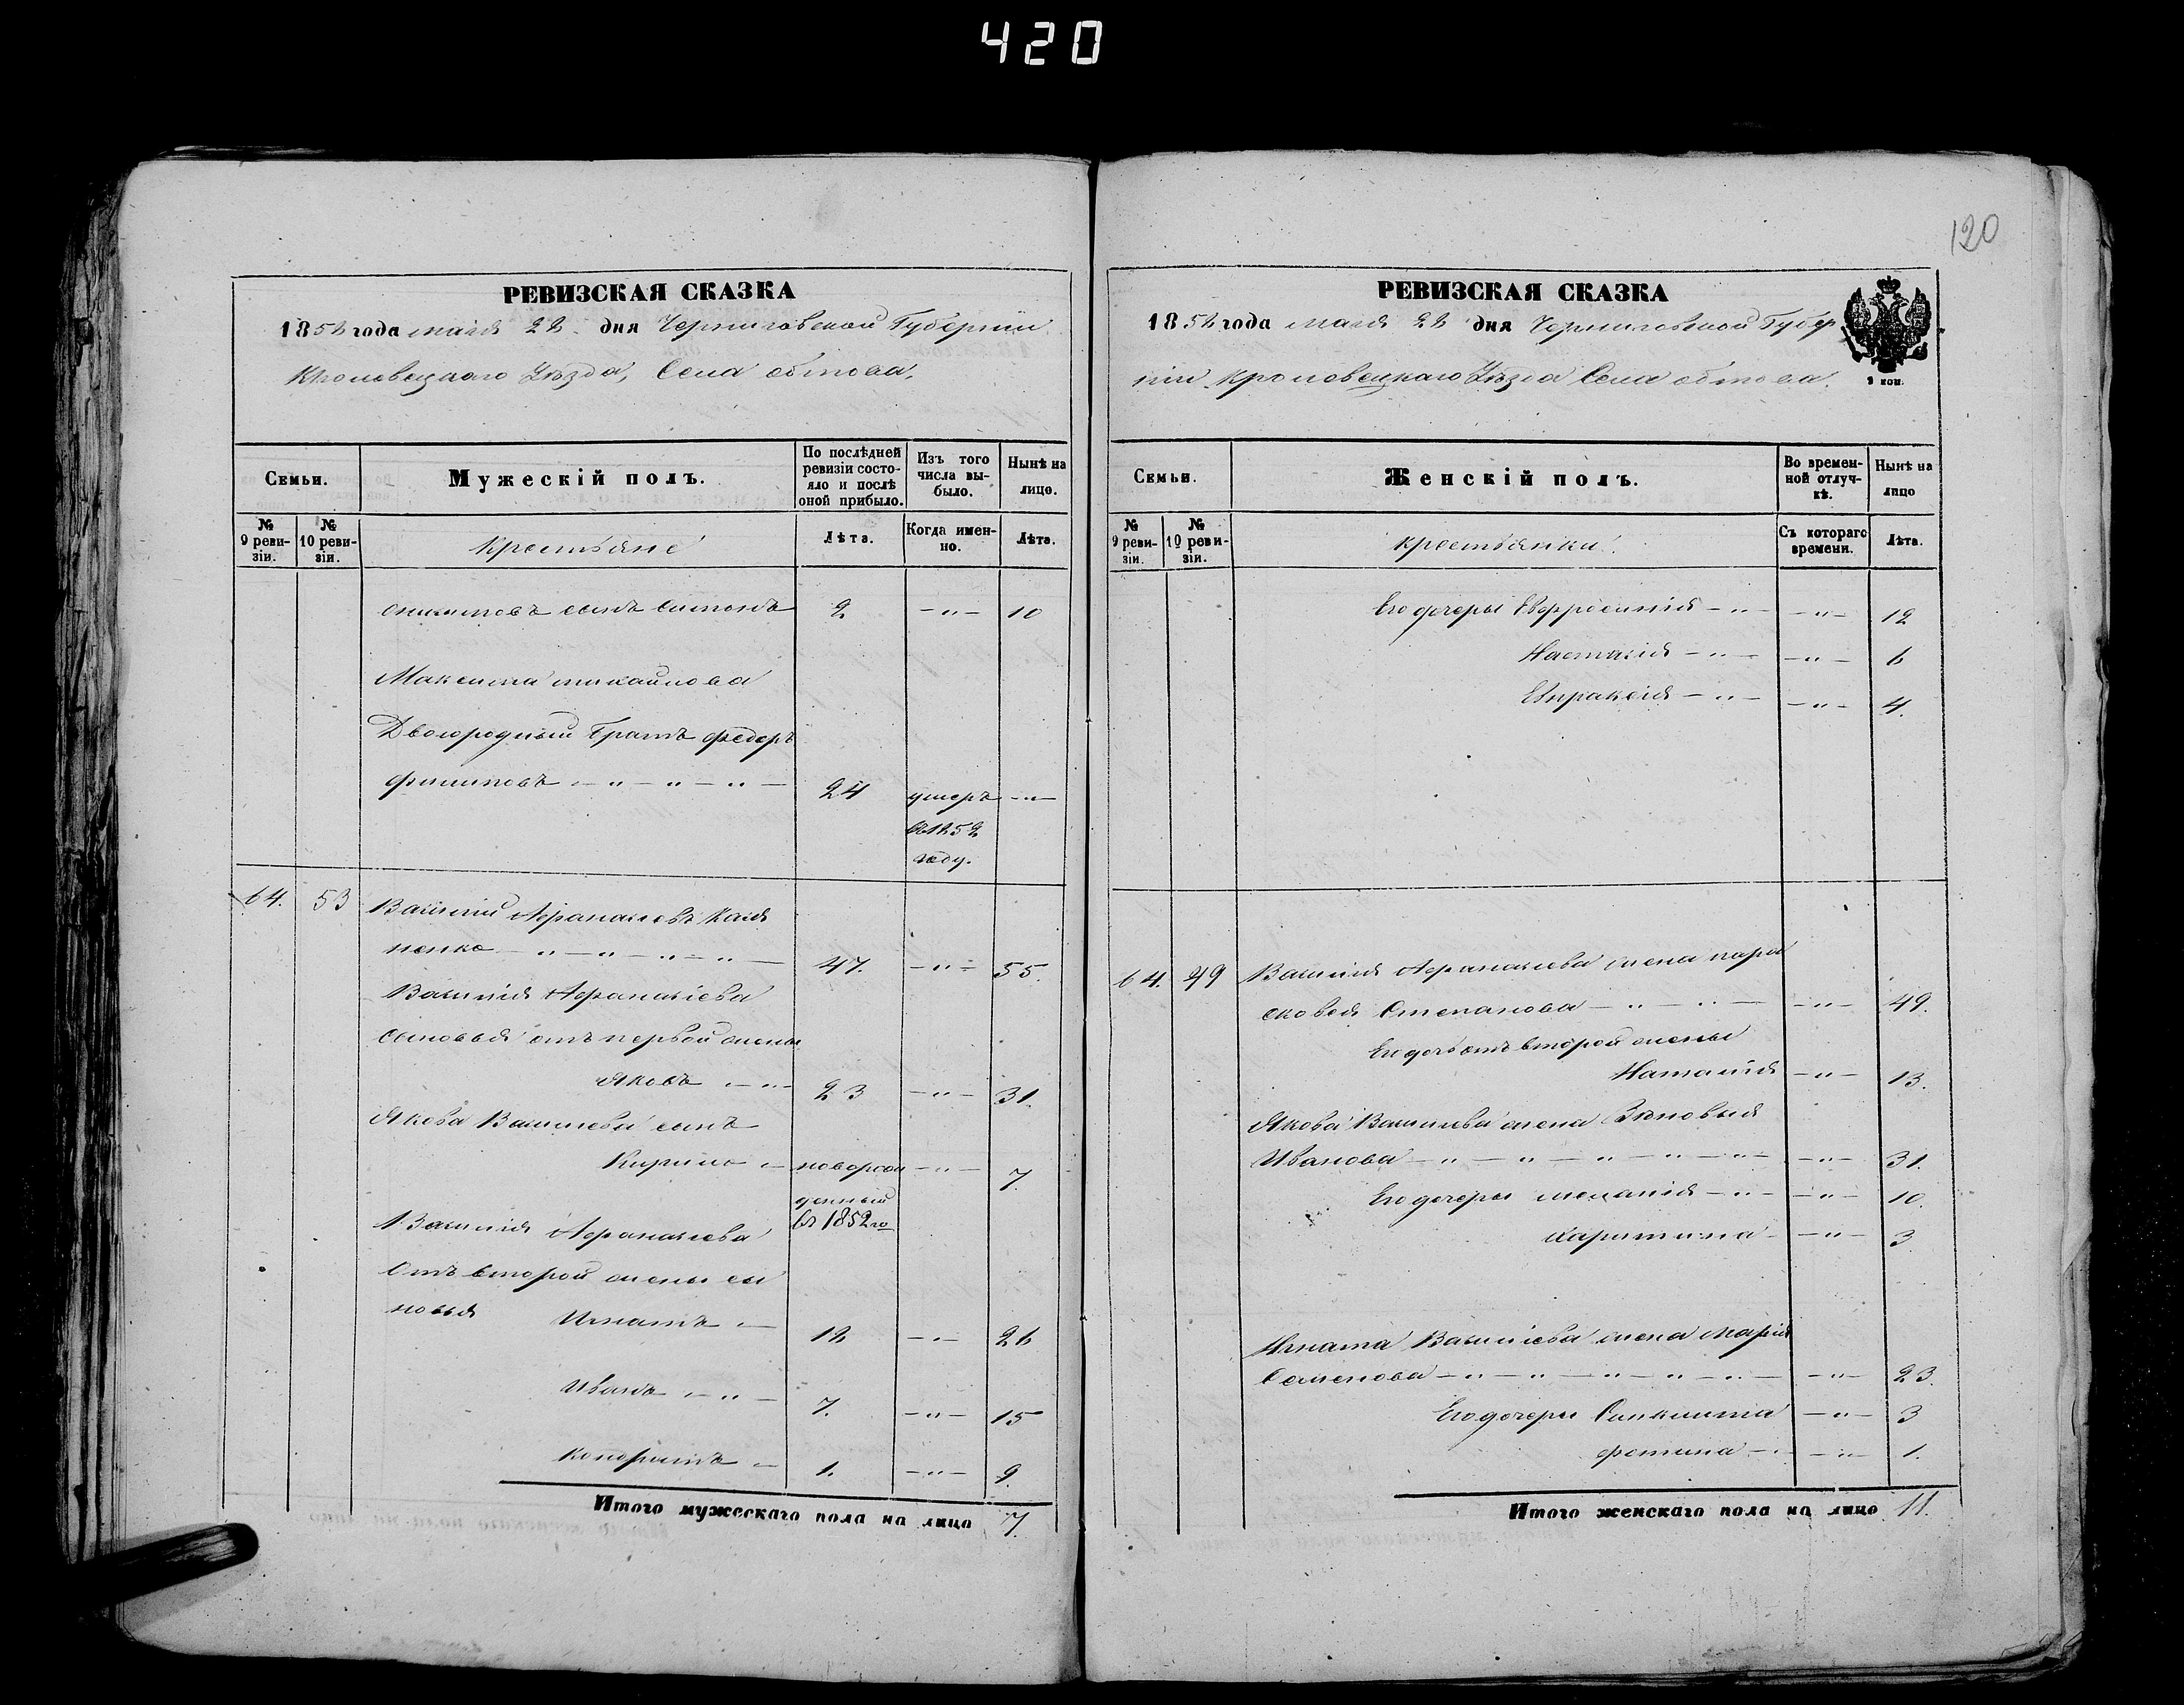 420
120
РЕВИЗСКАЯ СКАЗКА
1858 года мая 22 дня Черниговской Губерніи
Кролевецкаго Уѣзда, Села обтова.
Семьи.
Мужескій полъ.
По послѣдней ревизіи состояло и послѣ оной прибыло.
Изъ того числа выбыло.
Нынѣ на лицо.
№ 9 ревизіи.
№ 10 ревизіи.
Крестьяне
Лѣта.
Когда именно.
Лѣта.
сынъ Симонъ 2 —"— 10
Максима михайлова
Двоюродный братъ федоръ
филиповъ —"—"—"— 24 умеръ —"—
въ 1852
году.
64. 53 Василий Афанасьевъ Каля
ненко —"—"—"—"— 47. —"— 55.
Василія Афанасіева
сыновья отъ первой жены
Яковъ —"— 23 —"— 31.
Якова Васильева сынъ
Кирило — новорож —"— 7.
денный
въ 1852 го
Василія Афанасіева
Отъ второй жены сы
новья Игнатъ — 18 —"— 26
Иванъ —"— 7. —"— 15
Кондратъ — 1. —"— 9.
Итого мужескаго пола на лицо 7.
РЕВИЗСКАЯ СКАЗКА
1858 года мая 22 дня Черниговской Губер
ніи Кролевецкаго Уѣзда Села обтова.
2 коп.
Семьи.
Женскій полъ.
Во временной отлучкѣ.
Нынѣ на лицо
№ 9 ревизіи.
№ 10 ревизіи.
крестьянки.
Съ котораго времени.
Лѣта.
Его дочеры Евфросинія —"— —"— 12
Настасія —"— —"— 6
Евпраксія —"— —"— 4.
64. 49 Василія Афанасіева жена пара
сковея Степанова —"—"— —"— 49.
Его дочь отъ второй жены
Наталія —"— 13.
Якова Васильева жена Зѣновья
Иванова —"—"—"—"—"— —"— 31.
Его дочеры меланія —"— —"— 10.
Харитина — —"— 3
Игната Василіева жена Марія
Семенова —"—"—"—"—"— —"— 23.
Его дочеры Синклита —"— 3
фотина —"— —"— 1.
Итого женскаго пола на лицо 11.